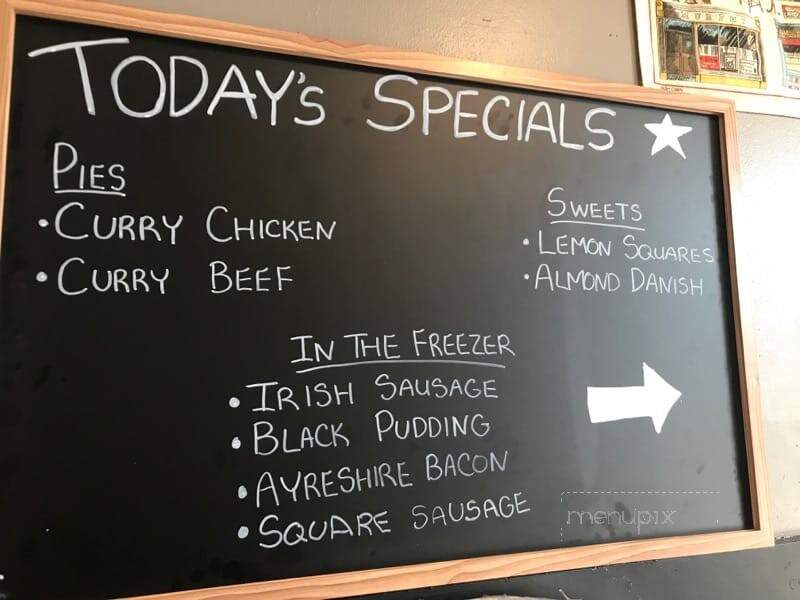 TODAY'S SPECIALS
PIES
• CURRY CHICKEN
• CURRY BEEF
SWEETS
• LEMON SQUARES
• ALMOND DANISH
IN THE FREEZER
• IRISH SAUSAGE
• BLACK PUDDING
• AYRESHIRE BACON
• SQUARE SAUSAGE
menupix